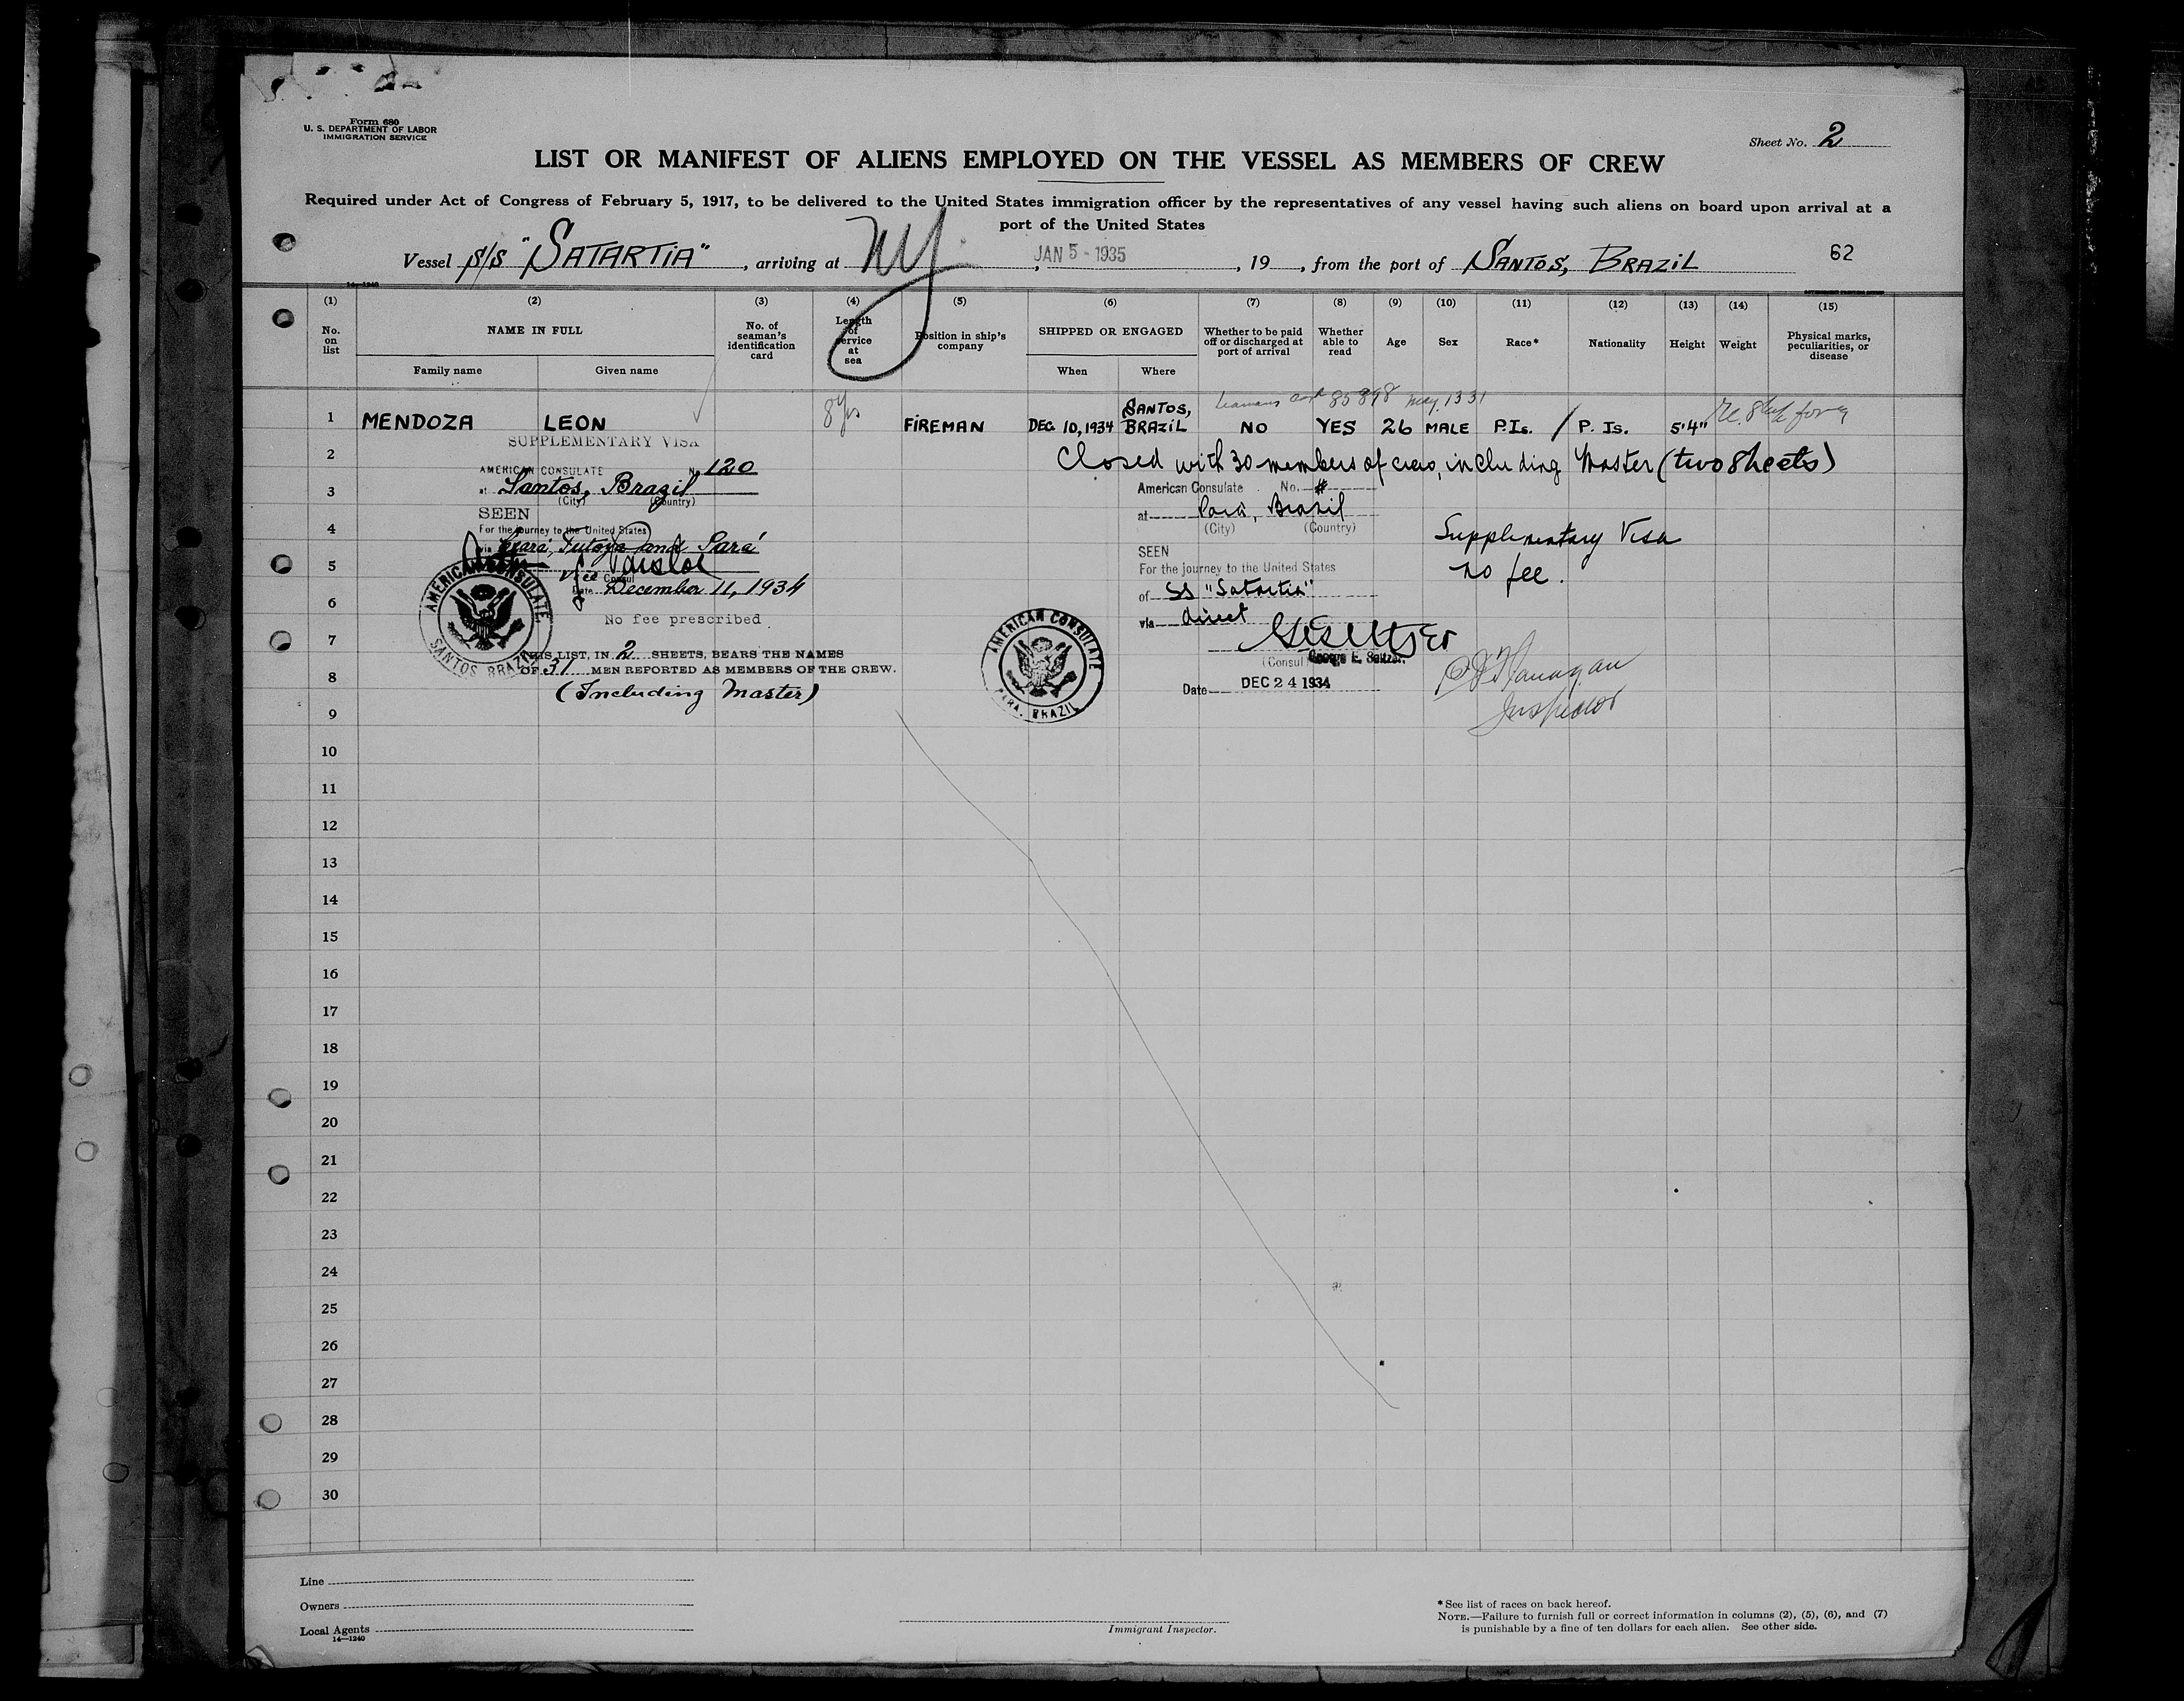 Form 680
U. S. DEPARTMENT OF LABOR
IMMIGRATION SERVICE
Sheet No. 2
LIST OR MANIFEST OF ALIENS EMPLOYED ON THE VESSEL AS MEMBERS OF CREW
Required under Act of Congress of February 5, 1917, to be delivered to the United States immigration officer by the representatives of any vessel having such aliens on board upon arrival at a
port of the United States
Vessel S/S "SATARTIA", arriving at NY, JAN 5 - 1935, 19, from the port of SANTOS, BRAZIL 62
14-1240
(1) (2) (3) (4) (5) (6) (7) (8) (9) (10) (11) (12) (13) (14) (15)
No. on list NAME IN FULL No. of seaman's identification card Length of service at sea Position in ship's company SHIPPED OR ENGAGED Whether to be paid off or discharged at port of arrival Whether able to read Age Sex Race* Nationality Height Weight Physical marks, peculiarities, or disease
Family name Given name When Where
85898 May. 13 31
1 MENDOZA LEON 8 yrs FIREMAN DEC. 10, 1934 SANTOS, BRAZIL NO YES 26 MALE P.Is. / P. Is. 5'4"
SUPPLEMENTARY VISA
2 Closed with 30 members of crew, including Master (two sheets)
AMERICAN CONSULATE No. 120
3 at Santos, Brazil
(City) (Country)
American Consulate No. #
at Pará, Brazil
(City) (Country)
SEEN
4 For the journey to the United States
via Ceara, Tutoya and Pará
Supplementary Visa
no fee.
5 Vice Consul
Date December 11, 1934
SEEN
For the journey to the United States
6 of SS "Satartia"
No fee prescribed
via direct
AMERICAN CONSULATE
SANTOS BRAZIL
7 THIS LIST, IN 2 SHEETS, BEARS THE NAMES
OF 31 MEN REPORTED AS MEMBERS OF THE CREW.
(Including Master)
AMERICAN CONSULATE
PARA, BRAZIL
(Consul George E. Seltzer.
8 Date DEC 24 1934
Flanagan
Inspector
9
10
11
12
13
14
15
16
17
18
19
20
21
22
23
24
25
26
27
28
29
30
Line
Owners
Local Agents
14-1240
Immigrant Inspector.
* See list of races on back hereof.
NOTE.—Failure to furnish full or correct information in columns (2), (5), (6), and (7)
is punishable by a fine of ten dollars for each alien. See other side.